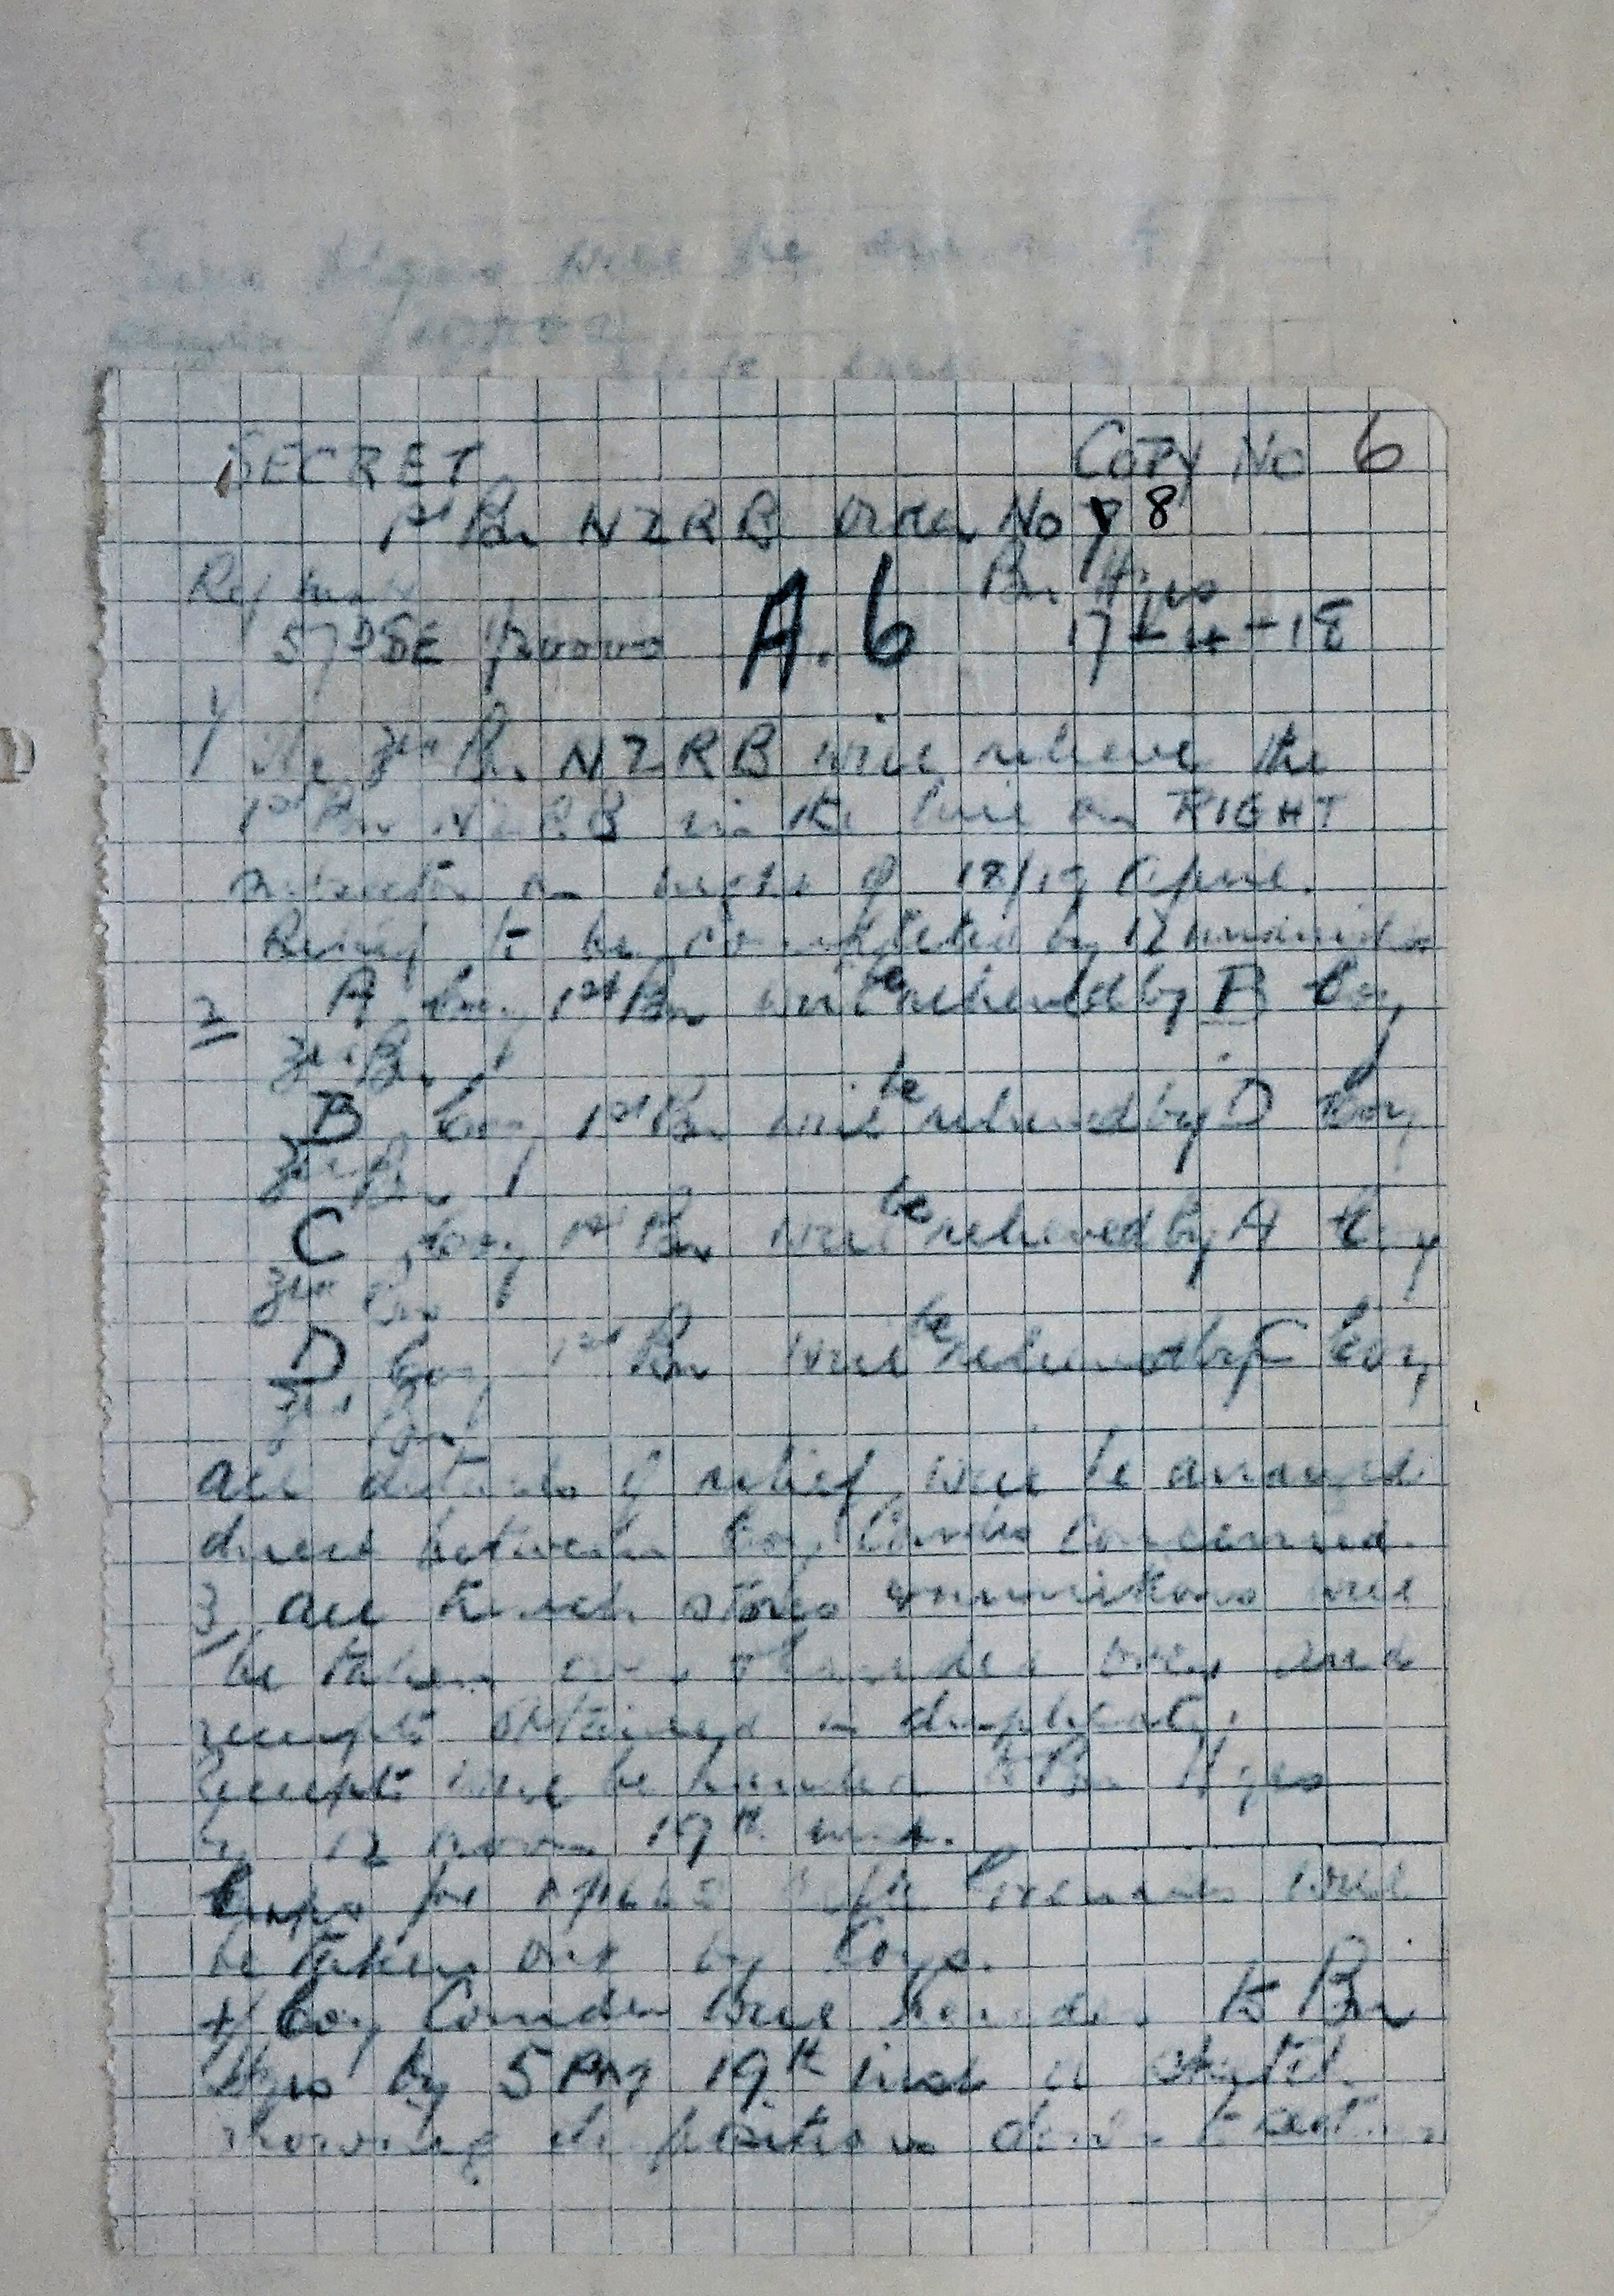 SECRET Copy No 6
1st Bn NZRB Order No 8
Ref
57D SE 1/20000 A.6 Bn Hqrs
17-4-18
1/ The 3rd Bn. NZRB will relieve the
1st Bn NZRB in the line on RIGHT
on night of 18/19 April.
Relief to be completed by 12 midnight
2 A Coy 1st Bn will be relieved by B Coy
3rd Bn.
B Coy 1st Bn will be relieved by D Coy
3rd Bn
C Coy 1st Bn will be relieved by A Coy
3rd Bn
D Coy 1st Bn will be relieved by C Coy
3rd Bn
All details of relief will be arranged
direct between Coy Comdrs concerned.
3/ All trench stores ammunitions will
be taken over & handed over and
receipts obtained in duplicate.
Receipts will be handed to Bn Hqrs
by 12 noon 19th inst.
for will
be taken out by Coys.
Coy Comdrs will to Bn
Hqrs by 5 PM 19th inst a sketch
showing dispositions